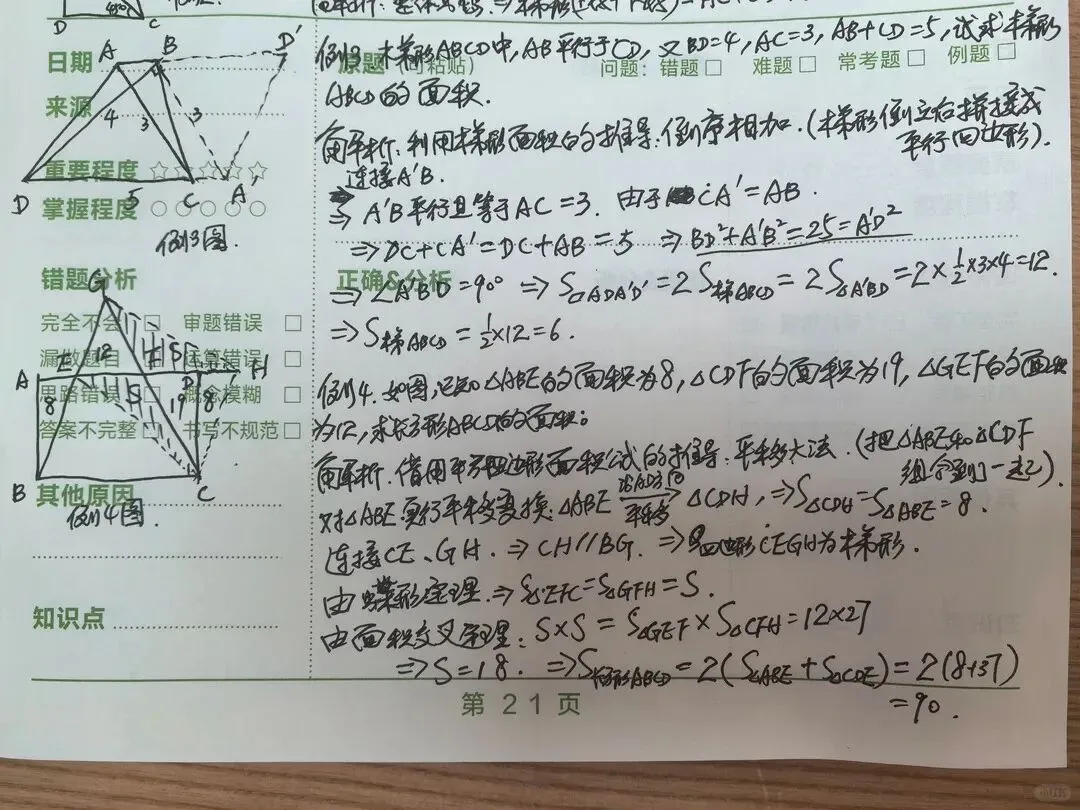 例13. 梯形ABCD中, AB平行于CD, 又BD=4, AC=3, AB+CD=5, 试求梯形
日期
原题(可粘贴)
问题: 错题 □ 难题 □ 常考题 □ 例题 □
ABCD的面积.
来源
解析: 利用梯形面积的推导: 倒序相加. (梯形倒立后拼接成
平行四边形).
重要程度 ☆☆☆☆☆
连接A'B.
掌握程度 ○○○○○
⇒ A'B平行且等于AC=3. 由于CA'=AB.
例13图.
⇒DC+CA'=DC+AB=5 ⇒ BD²+A'B²=25=A'D²
错题分析
正确&分析
⇒∠A'BD=90° ⇒ S▱ADA'D'=2S梯ABCD=2S△A'BD=2×½×3×4=12.
完全不会 □ 审题错误 □
⇒S梯ABCD=½×12=6.
漏做题目 □ 运算错误 □
思路错误 □ 概念模糊 □
例14. 如图, 已知△ABE的面积为8, △CDF的面积为19, △GEF的面积
答案不完整 □ 书写不规范 □
为12, 求长方形ABCD的面积.
解析. 借用平行四边形面积公式的推导: 平移大法. (把△ABE和△CDF
组合到一起).
其他原因
例14图.
对△ABE实行平移变换: △ABE 沿AD方向平移→ △CDH, ⇒S△CDH=S△ABE=8.
连接CE、GH. ⇒CH∥BG. ⇒四边形CEGH为梯形.
由蝶形定理. ⇒S△EFC=S△GFH=S.
知识点
由面积交叉定理: S×S=S△GEF×S△CFH=12×27
⇒S=18. ⇒S长方形ABCD=2(S△ABE+S△CDE)=2(8+37)
=90.
第 21 页
A
B
D'
4
3
3
D
5
C
A'
G
E
12
F
S
H
A
D
8
S
19
8
B
C